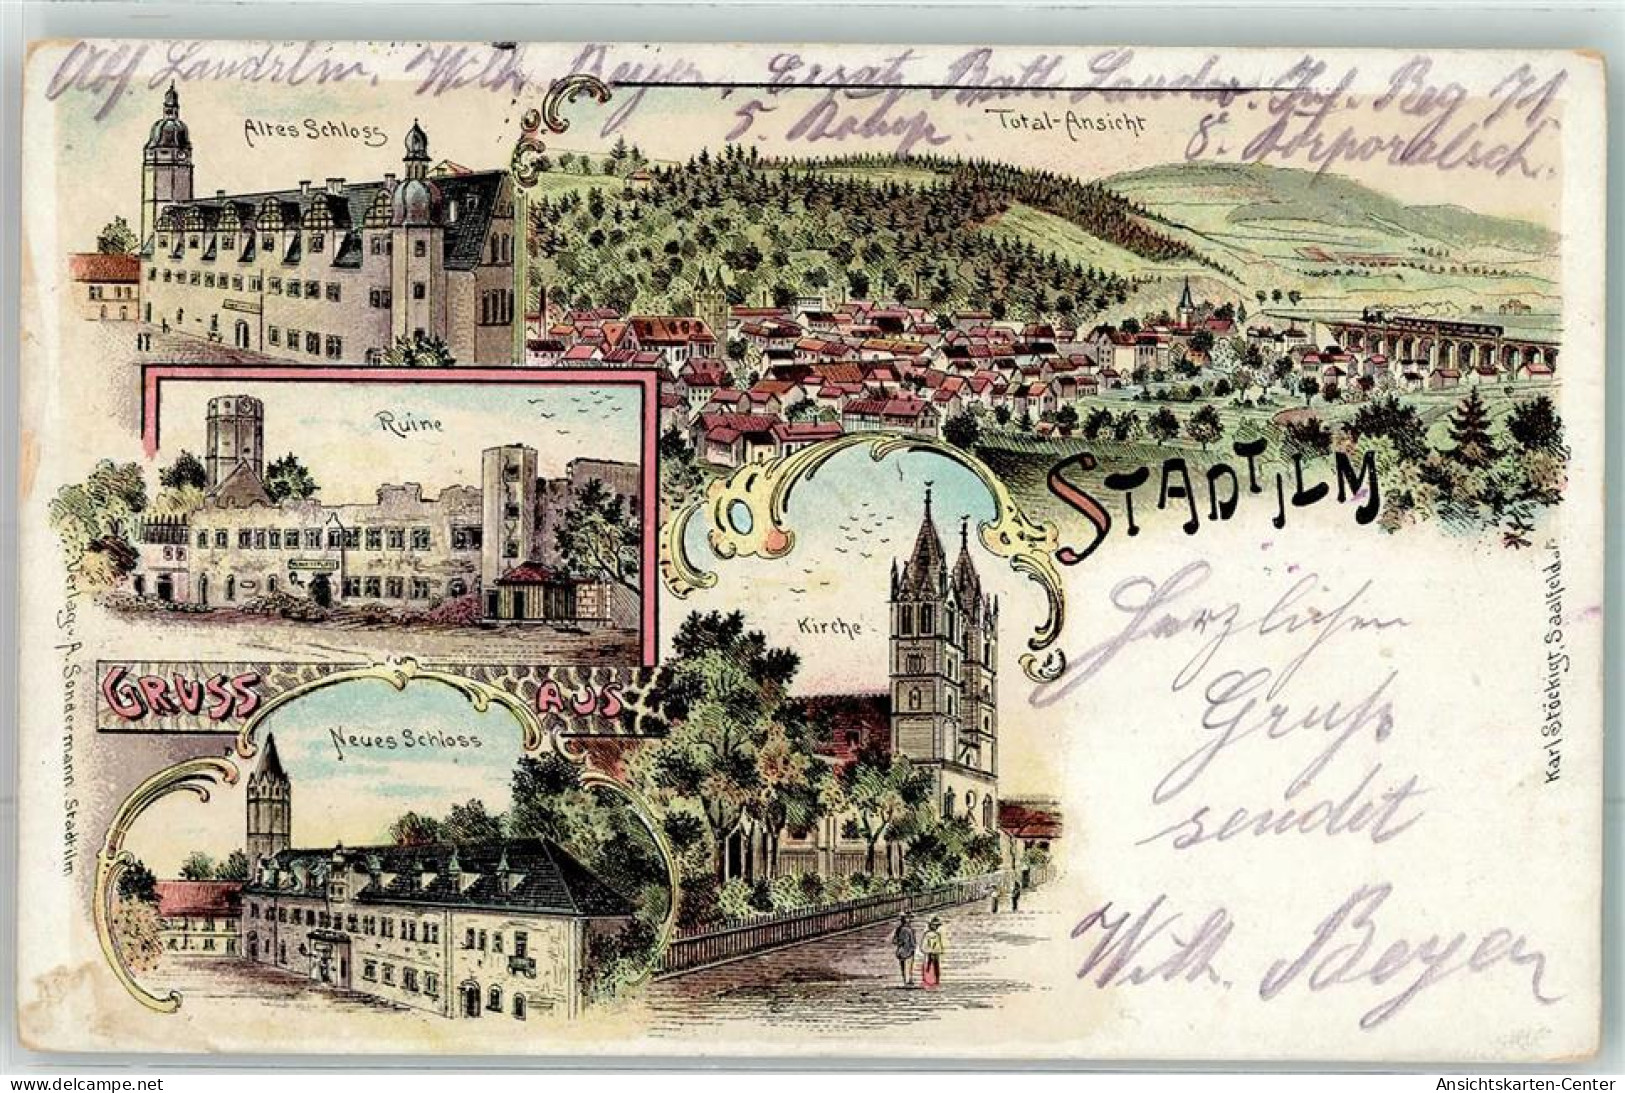 Abs. Landstm. Wilh. Beyer, Ersatz Batl. Landw. Inf. Reg 71
5. Komp. 8. Korporalsch.
Altes Schloss
Total-Ansicht
Ruine
STADTILM
Kirche
GRUSS AUS
Neues Schloss
Herzlichen
Gruß
sendet
Wilh. Beyer
Verlag v. A. Sondermann Stadtilm
Karl Stöckigt, Saalfeld a.S.
delcampe.net
Ansichtskarten-Center